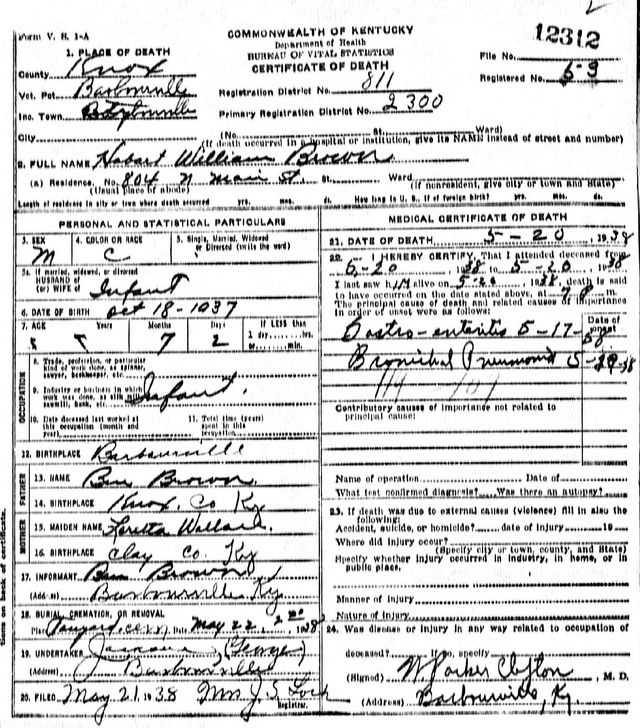 2
Form V. S. 1-A
COMMONWEALTH OF KENTUCKY
Department of Health
BUREAU OF VITAL STATISTICS
CERTIFICATE OF DEATH
12312
File No.
Registered No. 59
1. PLACE OF DEATH
County Knox
Vot. Pct. Barbourville
Inc. Town Barbourville
City
Registration District No. 811
Primary Registration District No. 2300
(No. St. Ward)
(If death occurred in a hospital or institution, give its NAME instead of street and number)
2. FULL NAME Hobart William Brown
(a) Residence. No. 804 N Main St. St. Ward
(Usual place of abode) (If nonresident, give city or town and State)
Length of residence in city or town where death occurred yrs. mos. ds. How long in U. S., if of foreign birth? yrs. mos. ds.
PERSONAL AND STATISTICAL PARTICULARS
3. SEX M
4. COLOR OR RACE C
5. Single, Married, Widowed or Divorced (write the word)
5a. If married, widowed, or divorced
HUSBAND of
(or) WIFE of Infant
6. DATE OF BIRTH Oct 18-1937
7. AGE Years Months 7 Days 2 If LESS than 1 day,....hrs. or....min.
OCCUPATION
8. Trade, profession, or particular kind of work done, as spinner, sawyer, bookkeeper, etc.
9. Industry or business in which work was done, as silk mill, sawmill, bank, etc. Infant.
10. Date deceased last worked at this occupation (month and year)
11. Total time (years) spent in this occupation
12. BIRTHPLACE Barbourville
FATHER
13. NAME Ben Brown.
14. BIRTHPLACE Knox. Co Ky
MOTHER
15. MAIDEN NAME Loretta
16. BIRTHPLACE Clay Co. Ky
17. INFORMANT Ben Brown
(Address) Barbourville Ky
18. BURIAL, CREMATION, OR REMOVAL
Place cem Date May 22, 1938
19. UNDERTAKER (George)
(Address) Barbourville
20. FILED May 21 1938 Mrs J. S. Lock
Registrar.
MEDICAL CERTIFICATE OF DEATH
21. DATE OF DEATH 5-20 1938
22. I HEREBY CERTIFY, That I attended deceased from
5-20 1938 to 5-20 1938
I last saw him alive on 5-20 1938, death is said
to have occurred on the date stated above, at 7 m.
The principal cause of death and related causes of importance in order of onset were as follows:
Date of onset
Gastro-enteritis 5-17-38
Bronichal Pneumonia 5-19-38
119 107
Contributory causes of importance not related to principal cause:
Name of operation Date of
What test confirmed diagnosis? Was there an autopsy?
23. If death was due to external causes (violence) fill in also the following:
Accident, suicide, or homicide? date of injury 19
Where did injury occur?
(Specify city or town, county, and State)
Specify whether injury occurred in industry, in home, or in public place.
Manner of injury
Nature of injury
24. Was disease or injury in any way related to occupation of
deceased? If so, specify
(Signed) W Parker Clifton, M. D.
(Address) Barbourville, Ky.
tions on back of certificate.